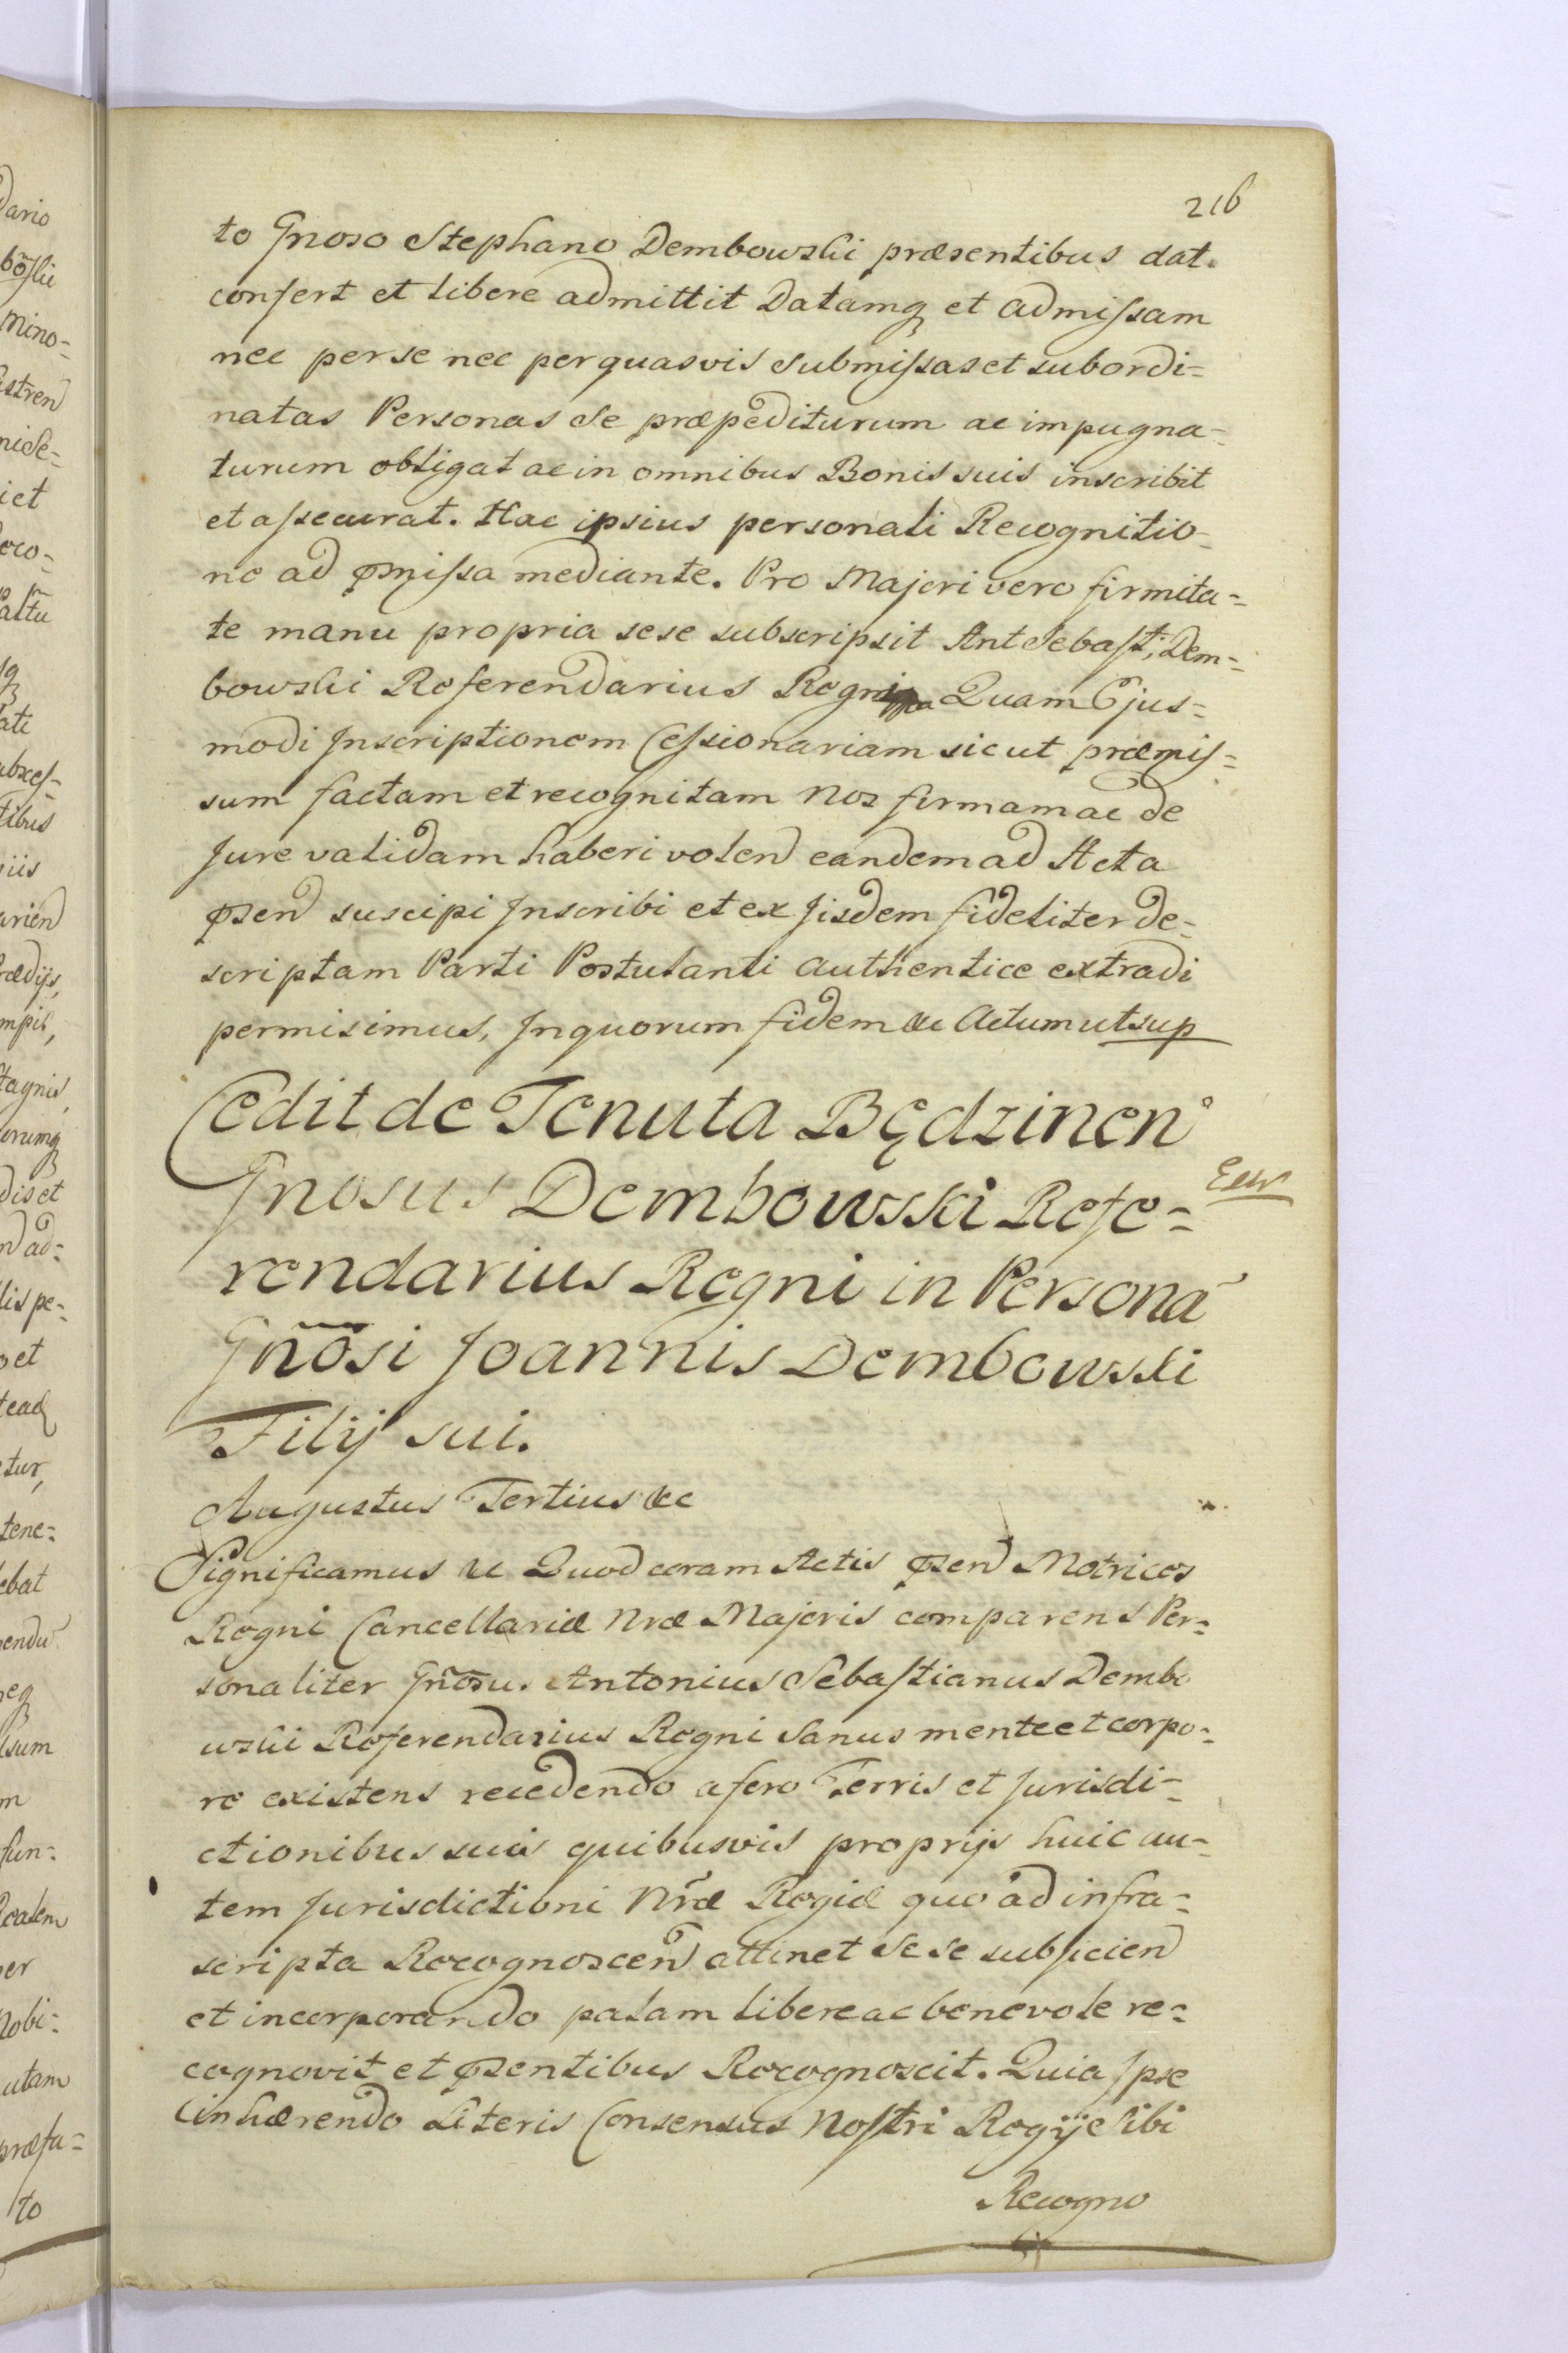 216
to Gnoso Stephano Dembowski præsentibus dat.
confert et libere admittit Datamq et admissam
nec per se nec per quasvis submissas et subordi=
natas Personas se præpediturum ac impugna=
turum obligat ac in omnibus Bonis suis inscribit
et assecurat. Hac ipsius personali Recognitio=
ne ad pmissa mediante. Pro Majori vero firmita=
te manu propria sese subscripsit Ant Sebast; Dem=
bowski Referendarius Regni Quam Ejus=
modi Inscriptionem Cessionariam sicut præmis=
sum factam et recognitam Nos firmam ac de
Jure validam haberi volen eandem ad Acta
psen suscipi Inscribi et ex Jisdem fideliter de=
scriptam Parti Postulanti authentice extradi
permisimus, In quorum fidem &c Actum ut sup
Cedit de Tenuta Będzinen
Gnosus Dembowski Refe=
rendarius Regni in Persona
Gnõsi Joannis Dembowski
Filij sui.
Augustus Tertius &c
Significamus &c Quod coram Actis psen Metrices
Regni Cancellariæ Nræ Majoris comparens Per=
sonaliter Gnõsu. Antonius Sebastianus Dembo
wski Referendarius Regni Sanus mente et corpo=
re existens recedendo a foro Terris et Jurisdi=
ctionibus suis quibusvis proprijs huic au=
tem Jurisdictioni Nræ Regiæ quo ad infra=
scripta Recognoscen attinet Sese subjicien
et incorporando palam libere ac benevole re=
cognovit et psentibus Recognoscit. Quia Ipse
inhærendo Literis Consensus Nostri Regij Sibi
Recogno